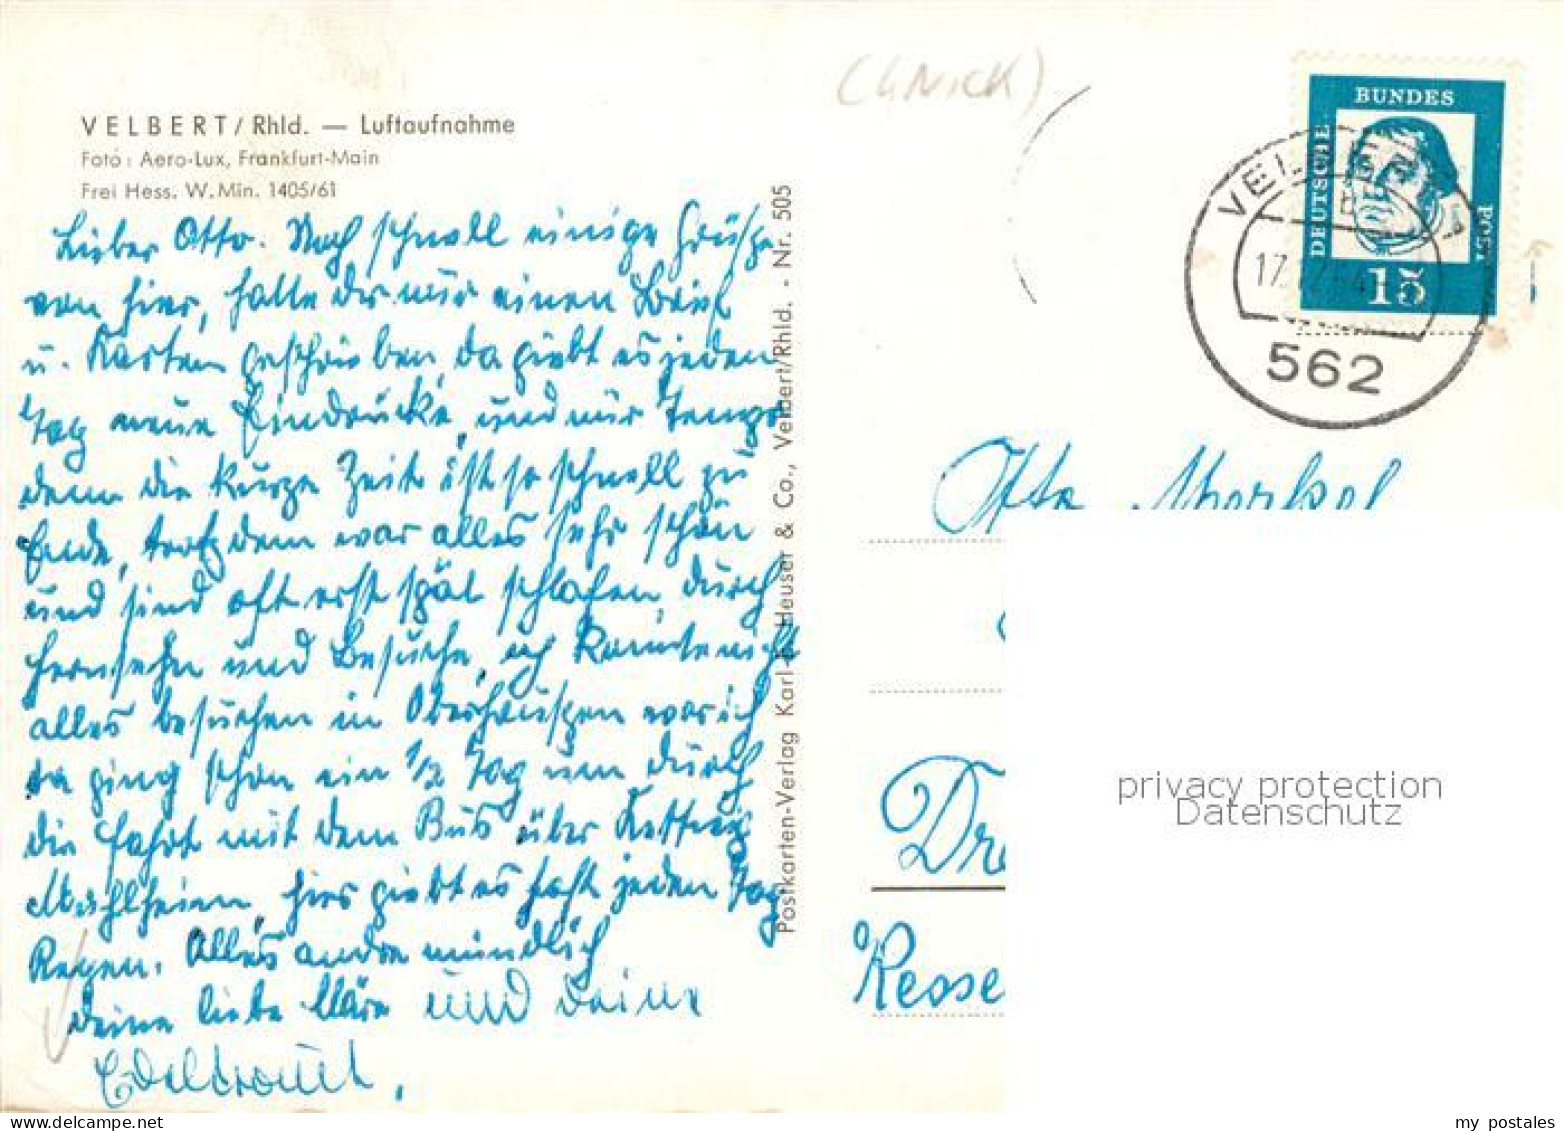 (UNICK)
VELBERT/Rhld. — Luftaufnahme
Foto: Aero-Lux, Frankfurt-Main
Frei Hess. W. Min. 1405/61
Lieber Otto. Noch schnell einige Grüße
von hier, hatte Dir nur einen Brief
u. Karten geschrieben, da giebt es jeden
Tag neue Eindrücke, und nur Tempo
denn die kurze Zeit ist so schnell zu
Ende, trotzdem war alles sehr schön
und sind oft erst spät schlafen, durch
Fernsehn und Besuche, ich konnte nicht
alles besuchen in Oberhausen war ich
da ging schon ein 1/2 Tag um durch
die Fahrt mit dem Bus über Kettwig
Mühlheim, hier giebt es fast jeden Tag
Regen. Alles andre mündlich
Deine liebe Kläre und Deine
Edeltraut,
Postkarten-Verlag Karl-H. Heuser & Co., Velbert/Rhld. - Nr. 505
DEUTSCHE BUNDES POST
15
VELBERT
17.12.64
562
Otto Merkel
Dre
Kesse
privacy protection
Datenschutz
my postales